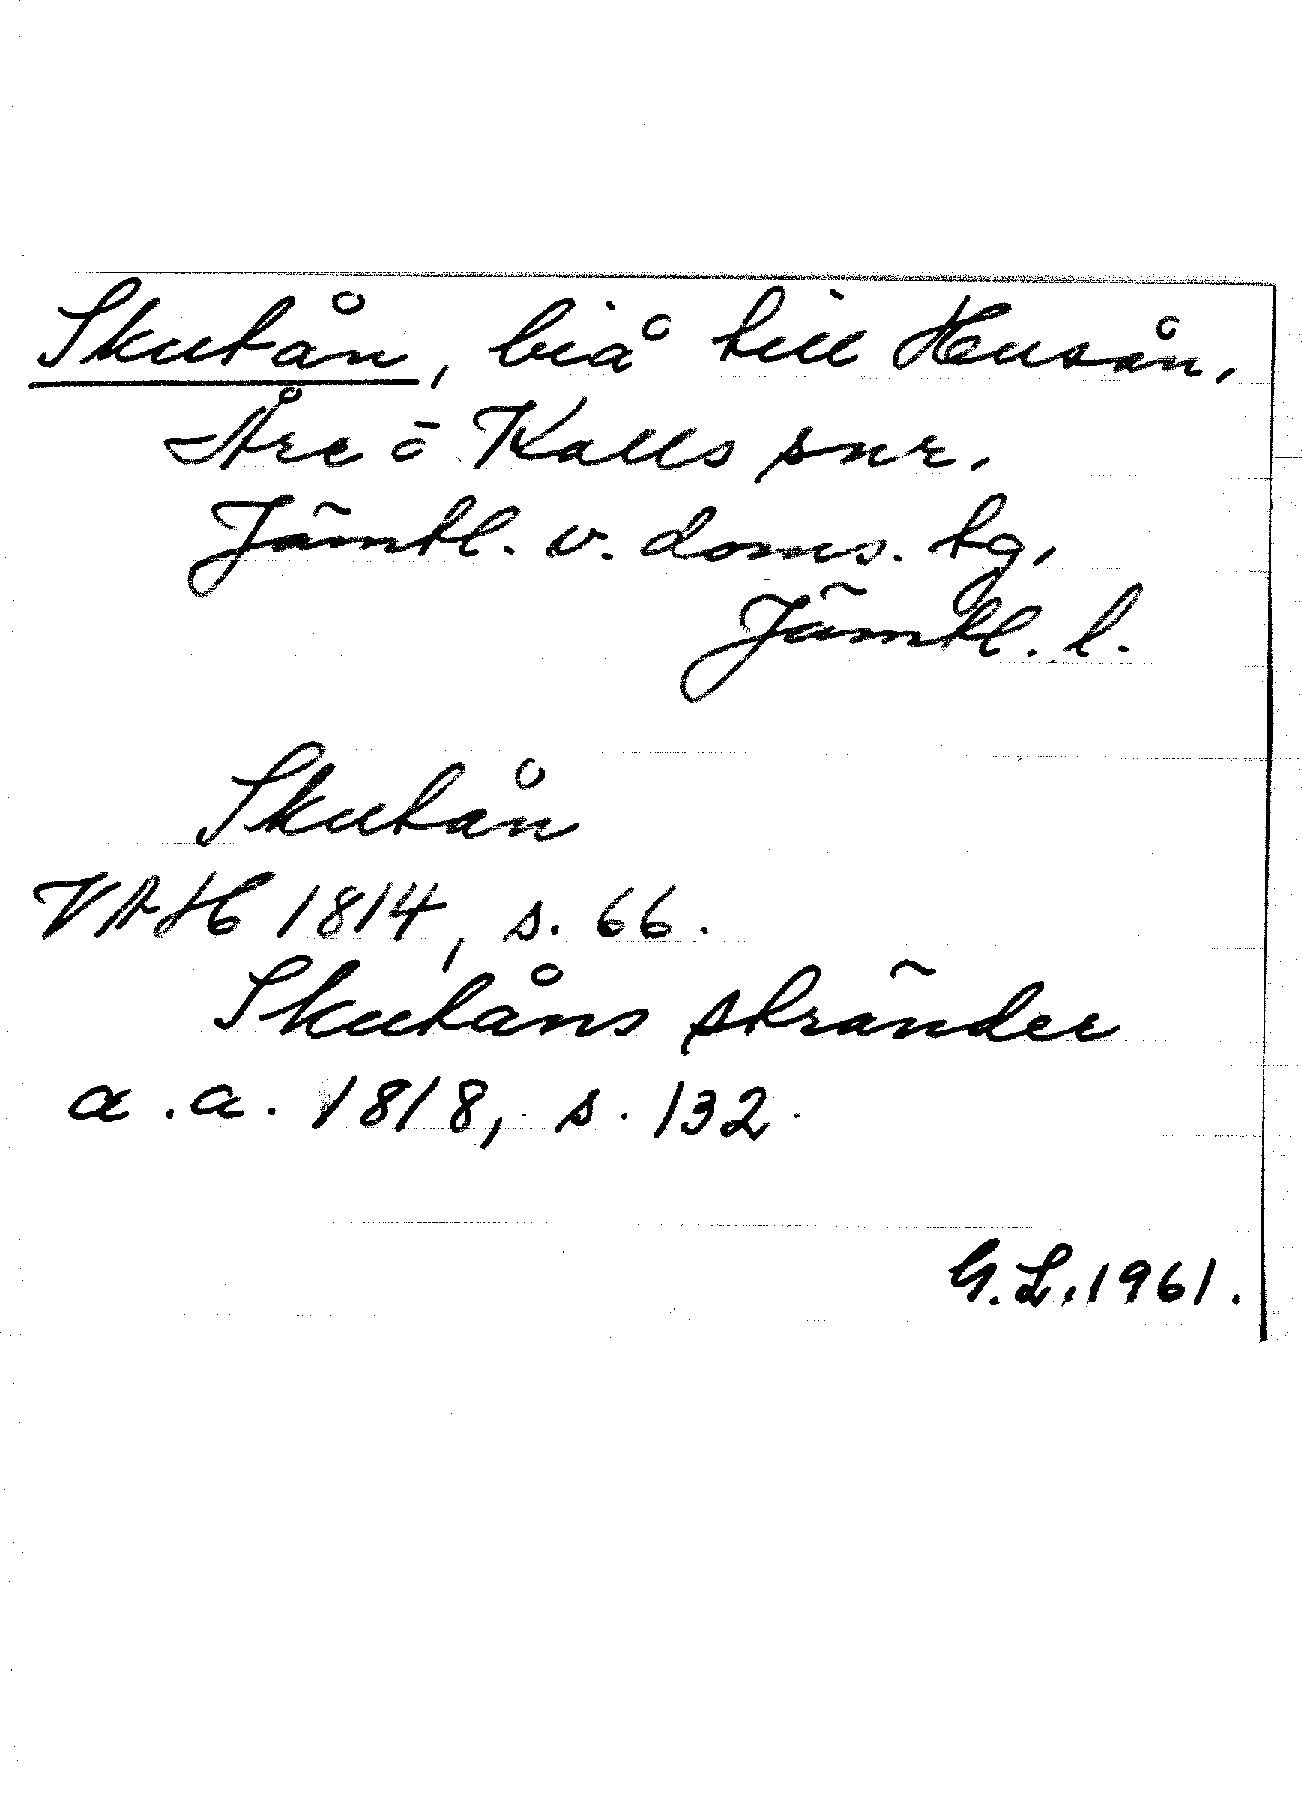 Skutån, biå till Husån,
Åre o Kalls snr.
Jämtl. v. doms. tg,
Jämtl. l.
Skutån
VAH 1814, s. 66.
Skutåns stränder
a. a. 1818, s. 132.
G. L. 1961.